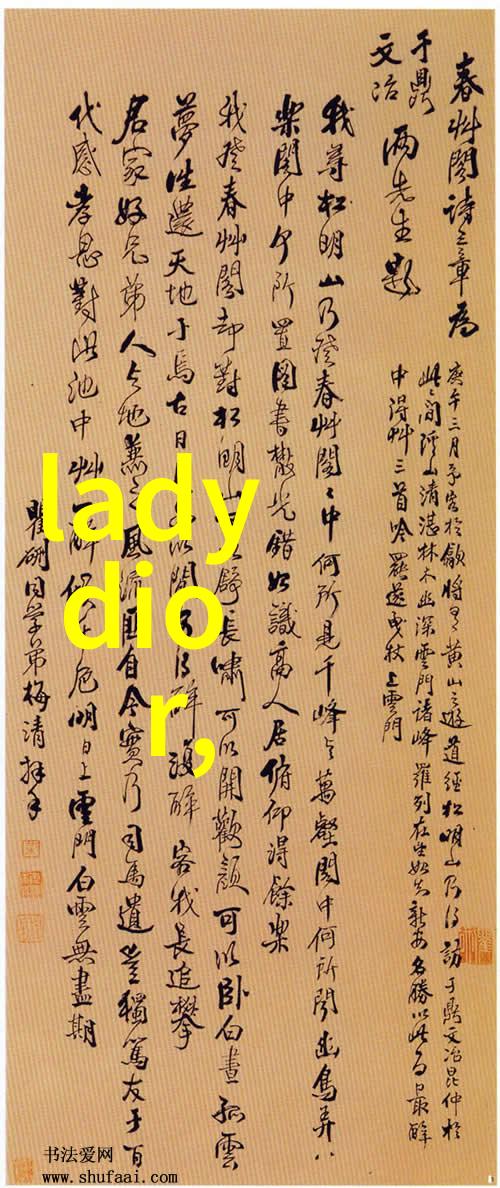 春艸閣詩三章為
于鼎
文冶
兩先生題
庚午三月予客於歙將為黃山之遊道經松明山乃得訪于鼎文冶昆仲於
此間谿山清湛林木幽深雲門諸峰羅列在坐新安名勝以此為最醉
中得艸三首吟罷遂曳杖上雲門
我尋松明山乃登春艸閣〻中何所見千峰與萬壑閣中何所聞幽鳥弄
樂閣中何所置圖書散光錯始識高人居俯仰得餘樂
我登春艸閣却對松明山舒長嘯可以開歡顏可以臥白晝孤雲
夢往還天地于焉古日以閒醉復醉客我長追攀
君家好兄弟人與地兼之風流匪自今實乃司馬遺豈獨篤友于百
代感孝思對此池中艸解危明日上雲門白雲無盡期
瞿硎同學弟梅清拜手
lady
dio
r,
书法爱网
www.shufaai.com